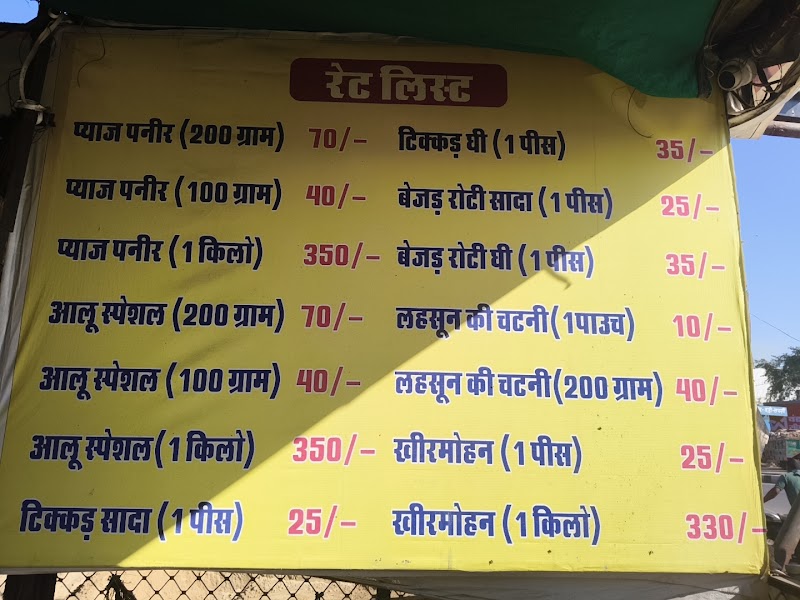 रेट लिस्ट
प्याज पनीर (200 ग्राम) 70/-
प्याज पनीर (100 ग्राम) 40/-
प्याज पनीर (1 किलो) 350/-
आलू स्पेशल (200 ग्राम) 70/-
आलू स्पेशल (100 ग्राम) 40/-
आलू स्पेशल (1 किलो) 350/-
टिक्कड़ सादा (1 पीस) 25/-
टिक्कड़ घी (1 पीस) 35/-
बेजड़ रोटी सादा (1 पीस) 25/-
बेजड़ रोटी घी (1 पीस) 35/-
लहसून की चटनी (1पाउच) 10/-
लहसून की चटनी (200 ग्राम) 40/-
खीरमोहन (1 पीस) 25/-
खीरमोहन (1 किलो) 330/-